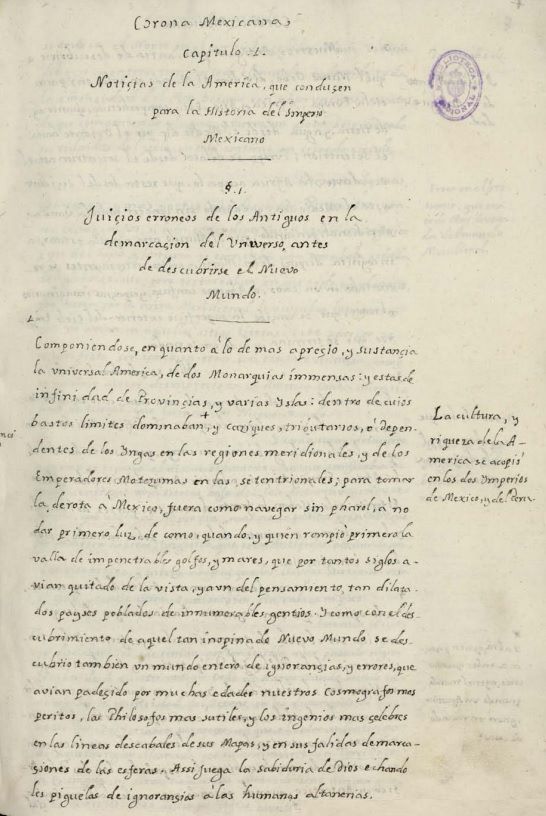 Corona Mexicana,
Capitulo .1.
Notiçias de la America, que conduçen
para la Historia del Imperio
Mexicano
§.1.
Juiçios erroneos de los Antiguos en la
demarcaçion del Vniverso, antes
de descubrirse el Nuevo
Mundo.
1
Componiendose, en quanto à lo de mas apreçio, y sustançia
la universal America, de dos Monarquias immensas: y estas de
infinidad de Provinçias, y varias Yslas: dentro de cuios
bastos limites dominaban,+ y caziques, tributarios, ô depen-
dentes de los Yngas en las regiones meridionales, y de los
Emperadores Motezumas en las setentrionales; para tomar
la derota à Mexico, fuera como navegar sin pharol, à no
dar primero luz, de como, quando, y quien rompiò primero la
valla de impenetrables golfos, y mares, que por tantos siglos a-
vian quitado de la vista, y aun del pensamiento tan dilata-
dos payses poblados de innumerables gentios. Y como con el des-
cubrimiento de aquel tan inopinado Nuevo Mundo se des-
cubrio tambien vn mundo entero de ignorançias, y errores, que
avian padeçido por muchas edades nuestros Cosmografos mas
peritos, los Philosofos mas sutiles, y los ingenios mas çelebres
en las lineas descabales de sus Mapas, y en sus falidas demarca-
çiones de las esferas. Assi juega la sabiduria de Dios echando
les piguelas de ignorançias à las humanas altanerias.
La cultura, y
riqueza de la A-
merica se acopiò
en los dos Imperios
de Mexico, y del Peru.
BIBLIOTECA
NACIONAL